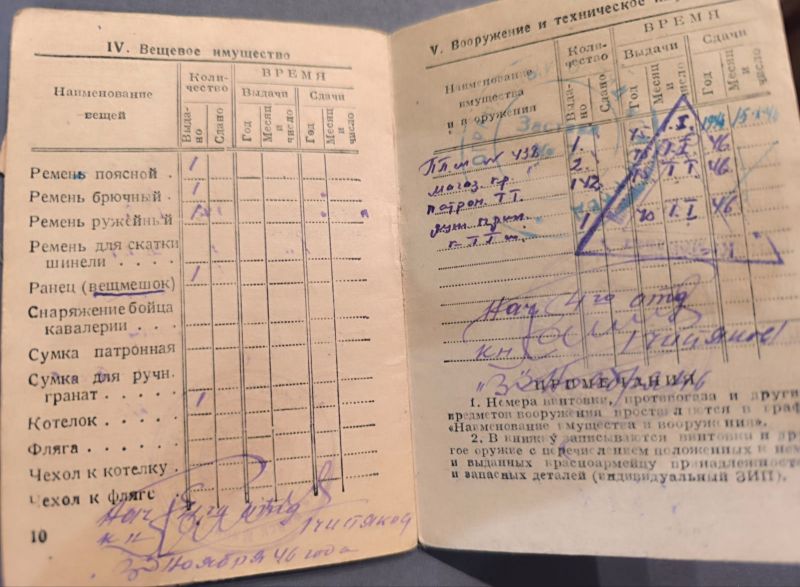 IV. Вещевое имущество
Наименование вещей
Коли-
чество
ВРЕМЯ
Выдачи
Сдачи
Выда-
но
Сдано
Год
Месяц и число
Год
Месяц и число
Ремень поясной . 1
Ремень брючный . 1
Ремень ружейный
Ремень для скатки
шинели . . . .
Ранец (вещмешок) 1
Снаряжение бойца
кавалерии . . .
Сумка патронная
Сумка для ручн.
гранат . . . . . 1
Котелок . . . . .
Фляга . . . . . .
Чехол к котелку .
Чехол к фляге
Нач 4го отд
кн Чистяков
3 Ноября 46 года
10
V. Вооружение и техническое
Наименование
имущества
и вооружения
Коли-
чество
ВРЕМЯ
Выдачи
Сдачи
Выда-
но
Сдано
Год
Месяц и число
Год
Месяц и число
1. I 1946
2. I. I 46
патрон ТТ. 142 I I 46
1 I. I 46
Нач 4го отд
кн Чистяков
46
ПРИМЕЧАНИЯ
1. Номера винтовки, противогаза и други
предметов вооружения проставляются в граф
«Наименование имущества и вооружения».
2. В книжку записываются винтовки и др
гое оружие с перечислением положенных к нем
и выданных красноармейцу принадлежност
и запасных деталей (индивидуальный ЗИП).